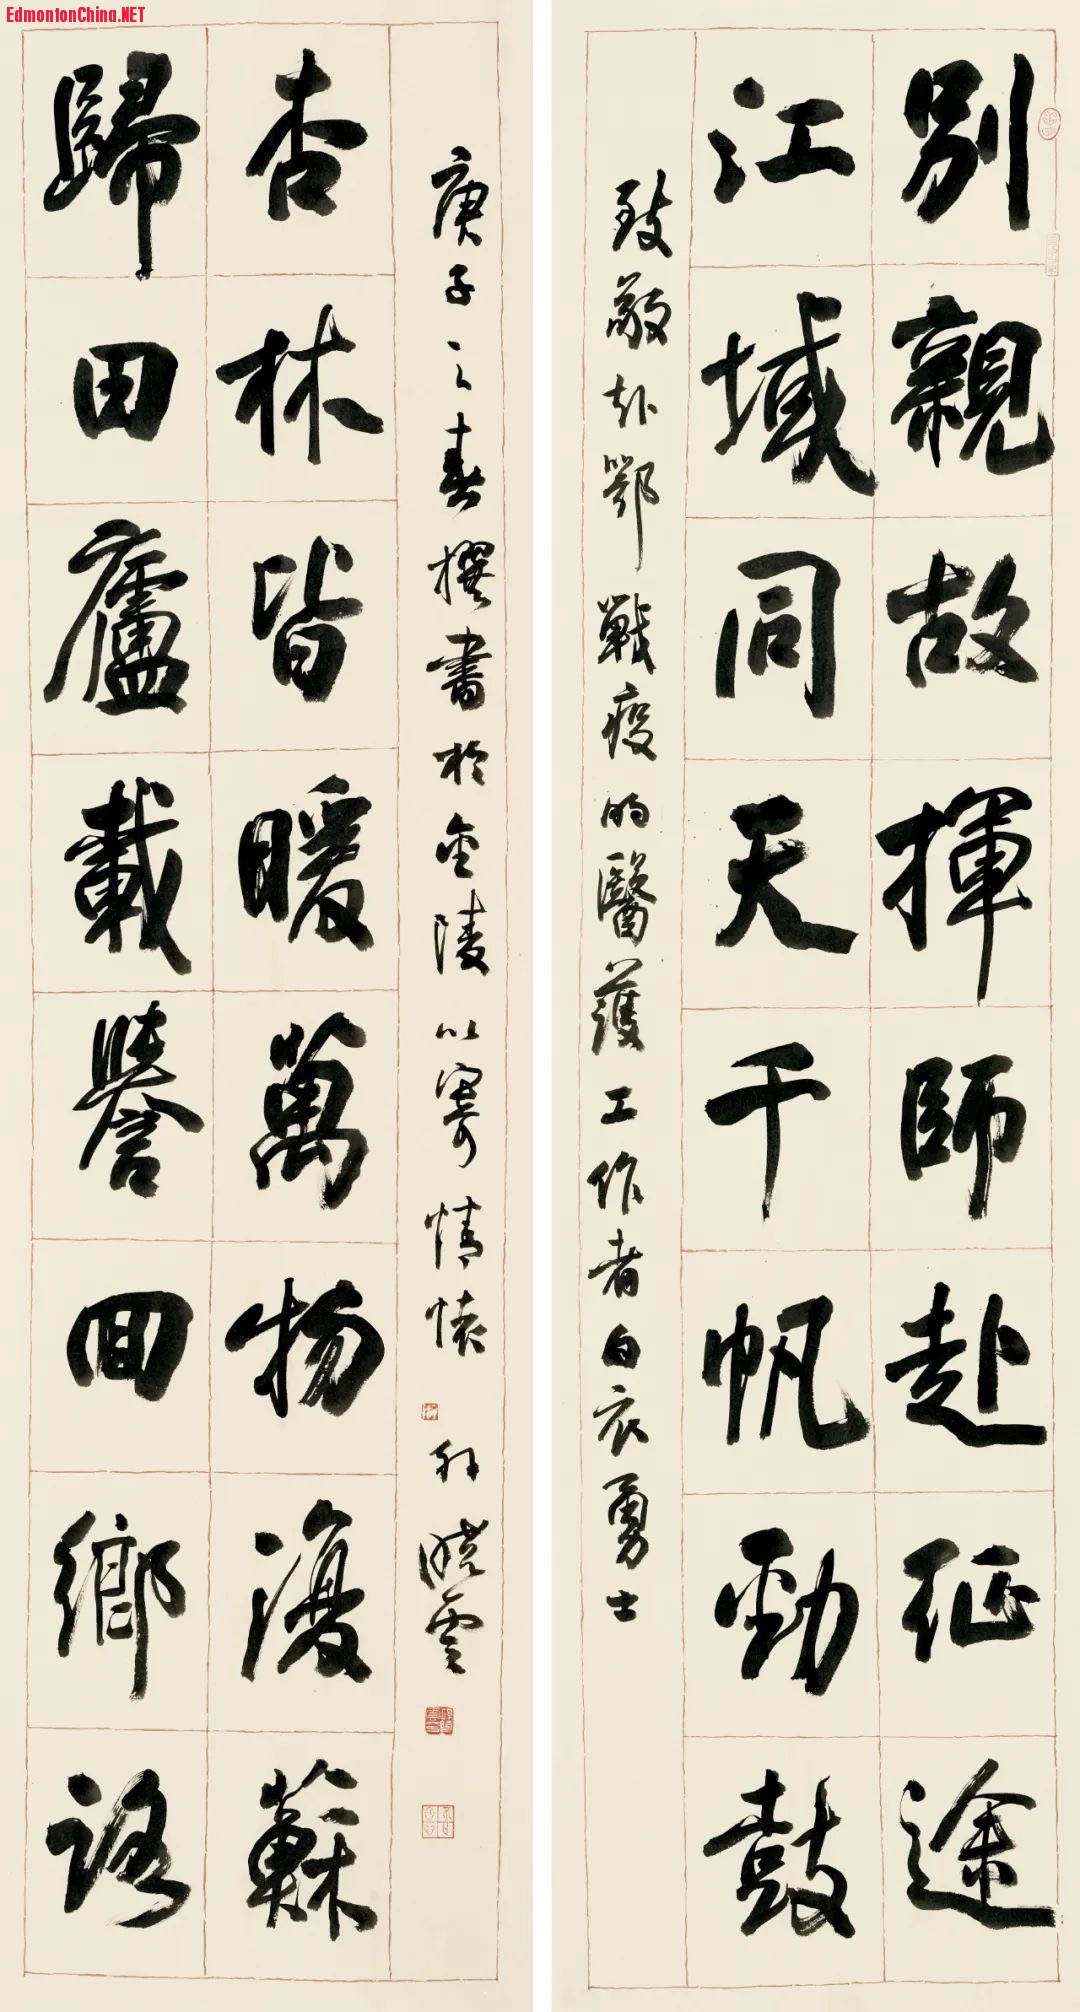 EdmontonChina.NET
別親故揮師赴征途
江域同天千帆勁鼓
致敬赴鄂戰疫的醫護工作者白衣勇士
歸田廬載譽回鄉路
杏林皆暖萬物復蘇
庚子之春撰書於金陵以寄情懷 孙曉雲